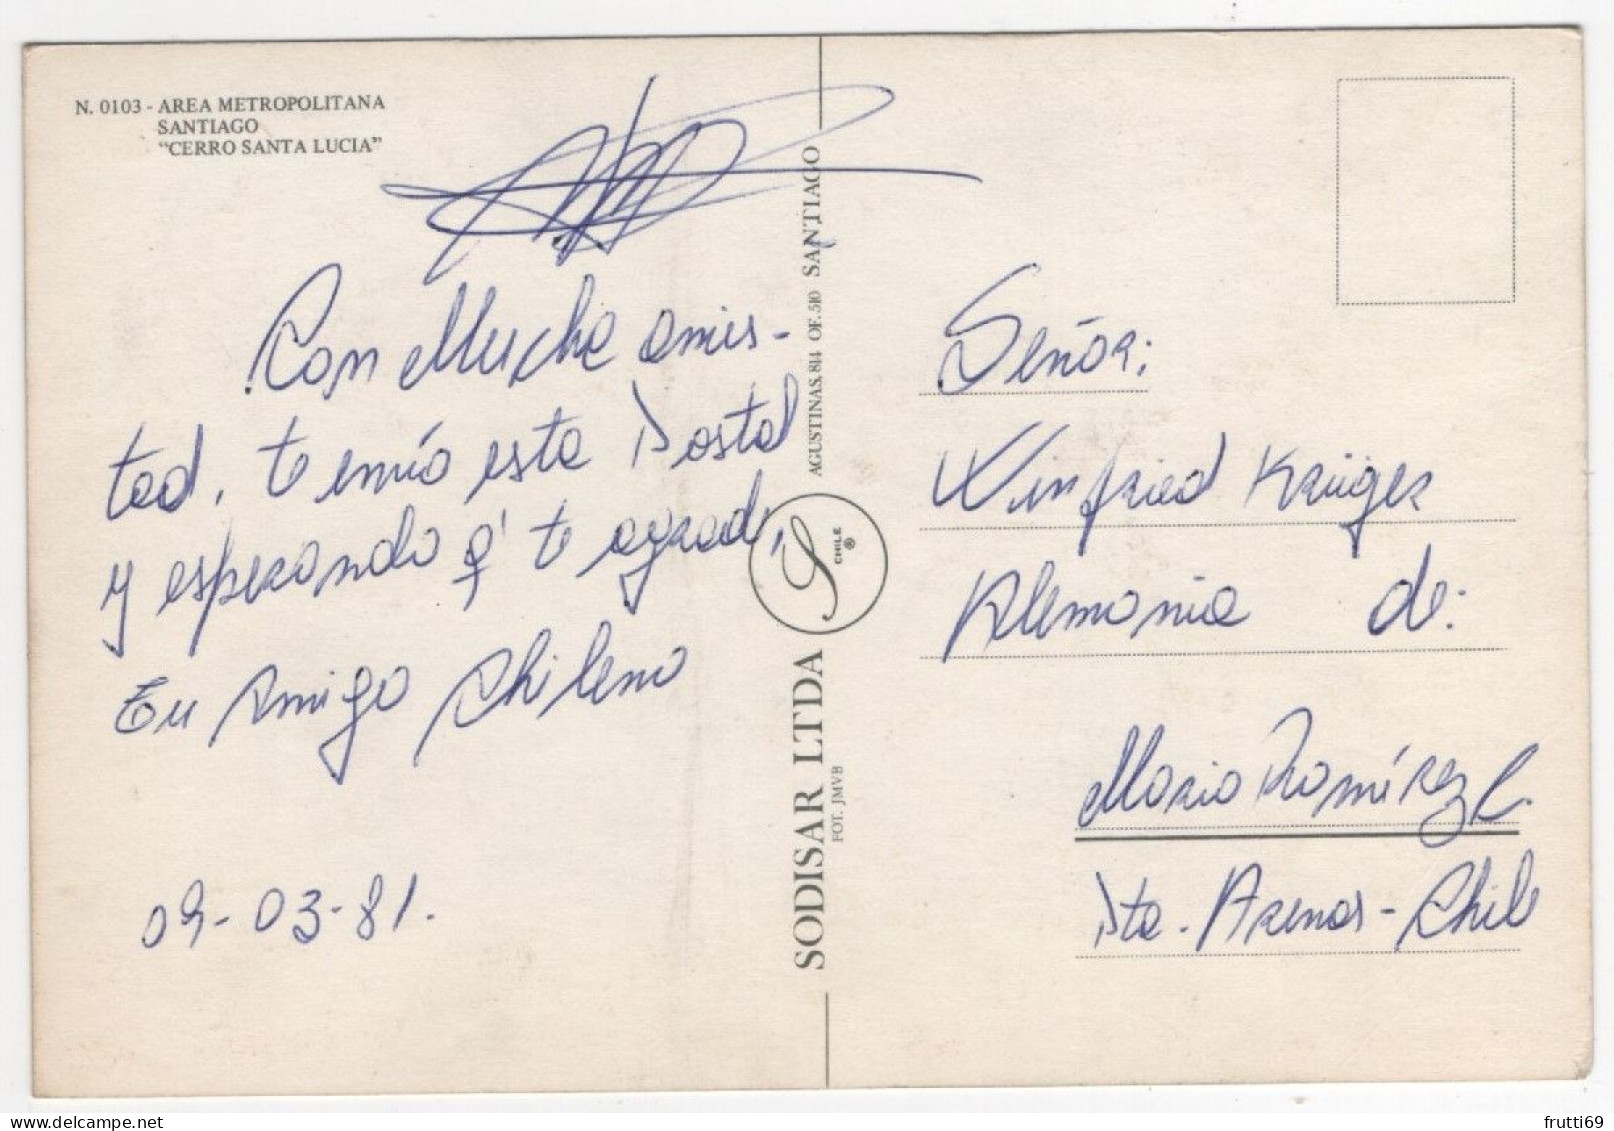 N. 0103 - AREA METROPOLITANA
SANTIAGO
“CERRO SANTA LUCIA”
Con Mucha amis-
tad, te envío esta Postal
y esperando q' te agrade,
Tu Amigo Chileno
09-03-81.
SODISAR LTDA
FOT. JMVB
CHILE
®
AGUSTINAS, 814 OF. 510 SANTIAGO
Señor:
Winfried Krüger
Alemania de:
Mario Ramírez C.
Pta. Arenas - Chile
delcampe.net
frutti69